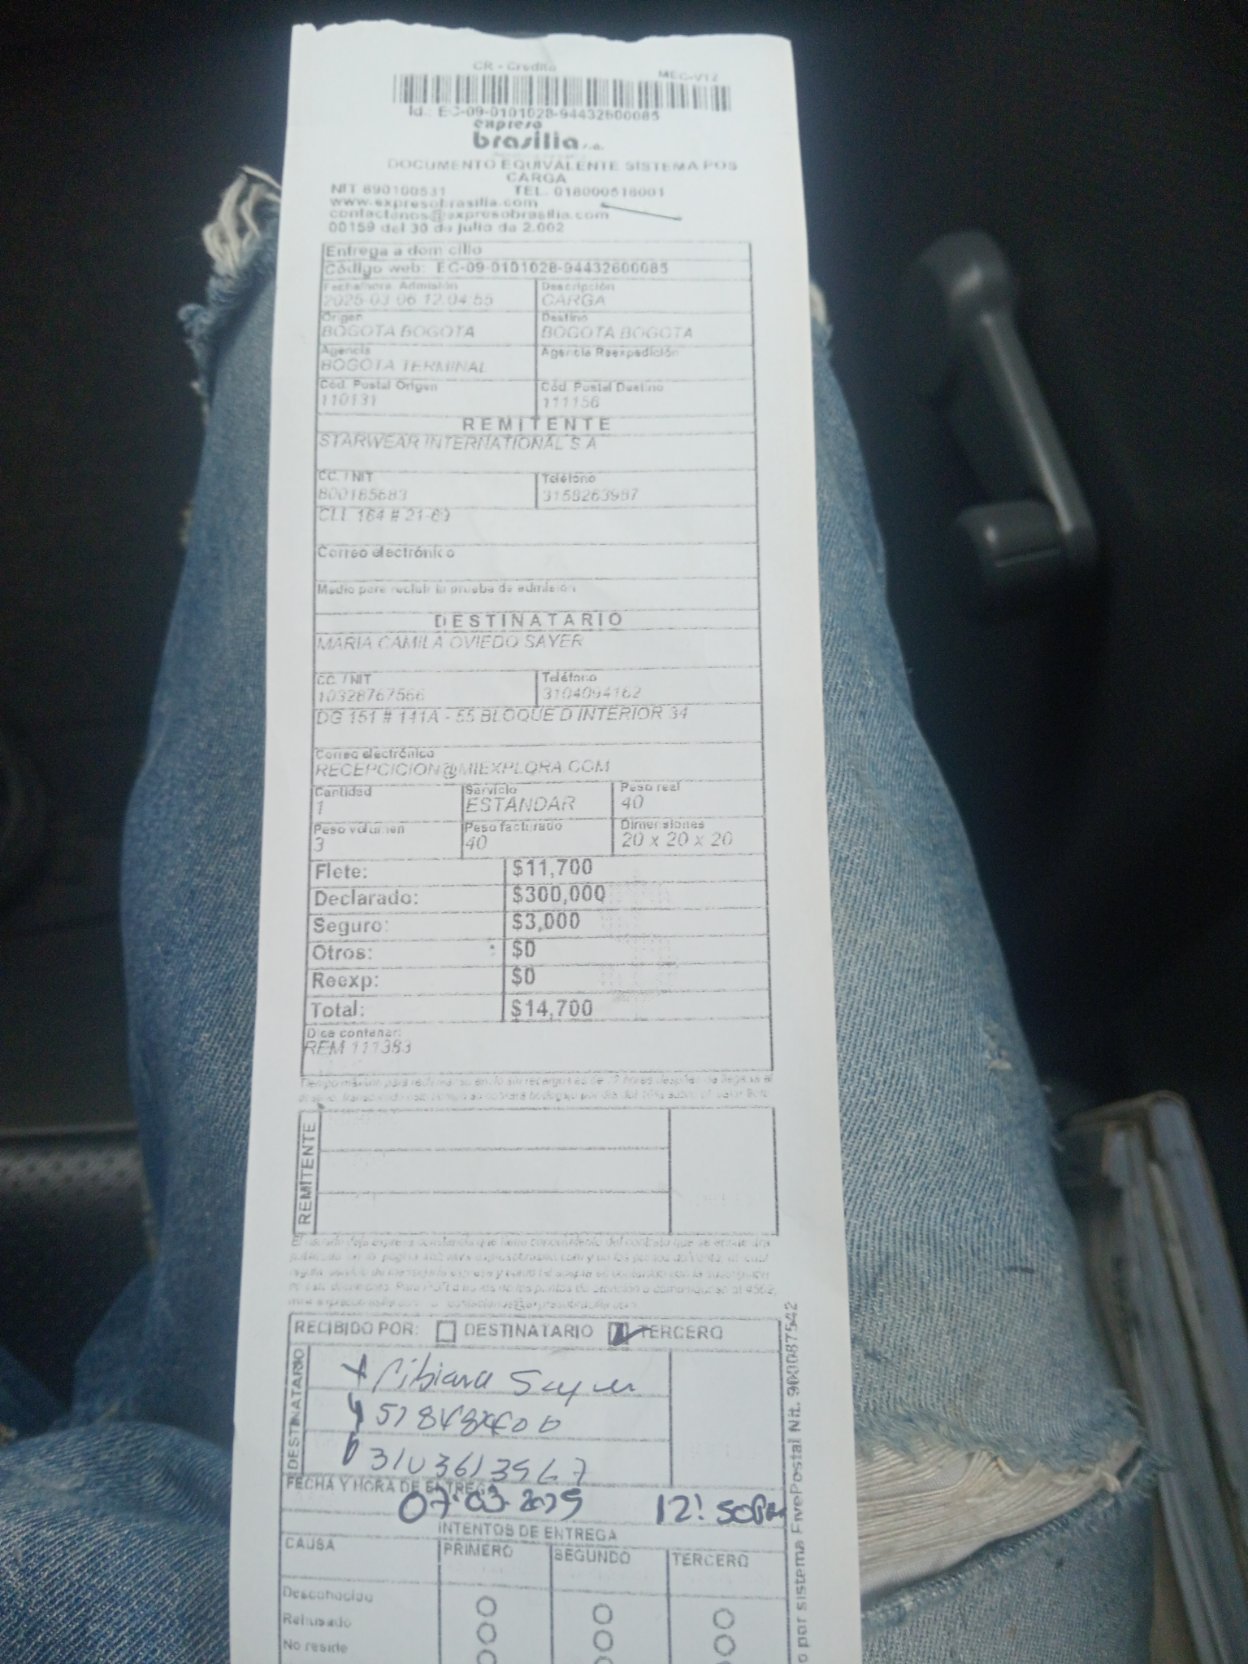 CR - Credito
MEC-V12
Id.: EC-09-0101028-94432600085
expreso
brasilia s.a.
DOCUMENTO EQUIVALENTE SISTEMA POS
CARGA
NIT 890100531 TEL. 018000518001
www.expresobrasilia.com
contactenos@expresobrasilia.com
00159 del 30 de julio de 2.002
Entrega a domicilio
Código web: EC-09-0101028-94432600085
Fecha/hora Admisión Descripción
2025-03-06 12:04:55 CARGA
Origen Destino
BOGOTA BOGOTA BOGOTA BOGOTA
Agencia Agencia Reexpedición
BOGOTA TERMINAL
Cód. Postal Origen Cód. Postal Destino
110131 111156
REMITENTE
STARWEAR INTERNATIONAL S A
CC. / NIT Teléfono
800185683 3158263987
CLL 164 # 21-
Correo electrónico
Medio para recibir la prueba de admisión
DESTINATARIO
MARIA CAMILA OVIEDO SAYER
CC. / NIT Teléfono
10328767566 3104094162
DG 151 # 141A - 55 BLOQUE D INTERIOR 34
Correo electrónico
RECEPCICION@MIEXPLORA.COM
Cantidad Servicio Peso real
1 ESTANDAR 40
Peso volumen Peso facturado Dimensiones
3 40 20 x 20 x 20
Flete: $11,700
Declarado: $300,000
Seguro: $3,000
Otros: $0
Reexp: $0
Total: $14,700
Dice contener:
REM 111383
REMITENTE
RECIBIDO POR: DESTINATARIO TERCERO
DESTINATARIO
Bibiana Sayer
3103613967
FECHA Y HORA DE ENTREGA
07.03.2025 12:50PM
INTENTOS DE ENTREGA
CAUSA PRIMERO SEGUNDO TERCERO
Desconocido
Rehusado
No reside
o por sistema FivePostal Nit. 900087542